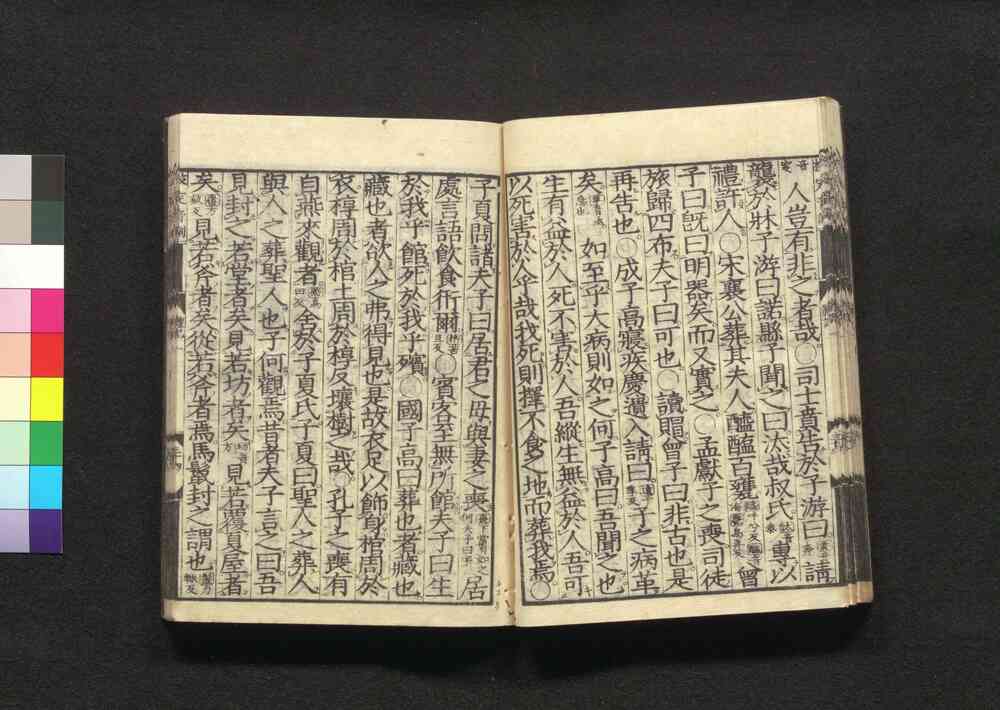 人豈有非之者哉○司士賁告於子游曰請
襲於牀子游曰諾縣子聞之曰汰哉叔氏專以
禮許人○宋襄公葬其夫人醯醢百甕曾
子曰旣曰明器矣而又實之○孟獻子之喪司徒
旅歸四布夫子曰可也○讀賵曾子曰非古也是
再告也○成子高寢疾慶遺入請曰子之病革
矣如至乎大病則如之何子高曰吾聞之也
生有益於人死不害於人吾縱生無益於人吾可
以死害於人乎哉我死則擇不食之地而葬我焉○
子夏問諸夫子曰居君之母與妻之喪居
處言語飲食衎爾○賓客至無所館夫子曰生
於我乎館死於我乎殯○國子高曰葬也者藏也
藏也者欲人之弗得見也是故衣足以飾身棺周於
衣椁周於棺土周於椁反壤樹之哉○孔子之喪有
自燕來觀者舍於子夏氏子夏曰聖人之葬人
與人之葬聖人也子何觀焉昔者夫子言之曰吾
見封之若堂者矣見若坊者矣見若覆夏屋者
矣見若斧者矣從若斧者焉馬鬣封之謂也